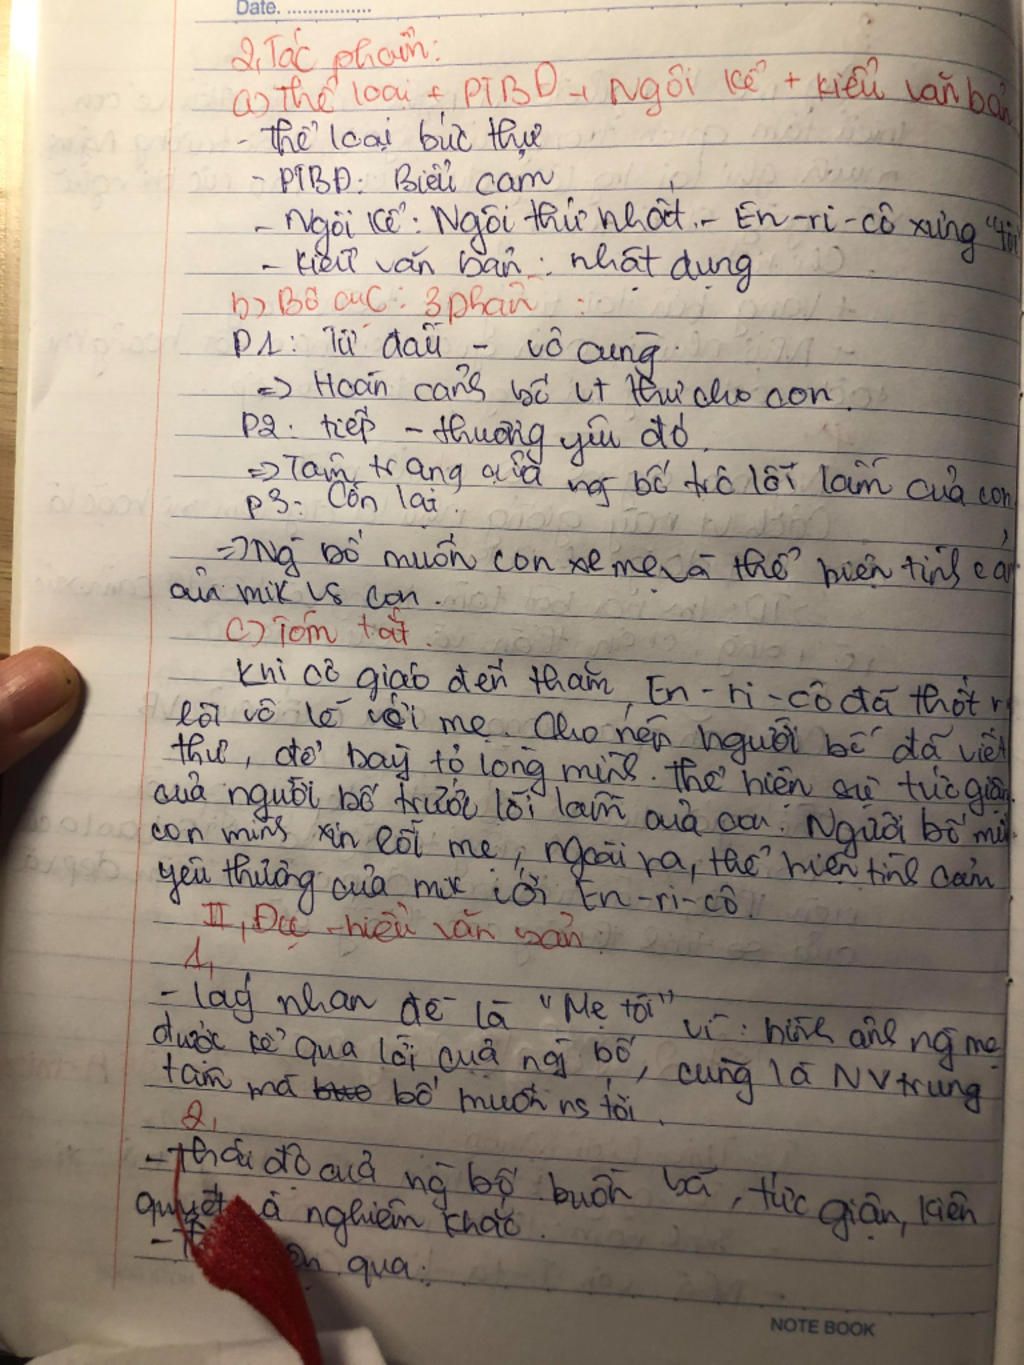 Date. ................
2, Tác phẩm:
a) Thể loại + PTBĐ + Ngôi kể + kiểu văn bản
- thể loại bức thư
- PTBĐ: Biểu cảm
- Ngôi kể: Ngôi thứ nhất. - En-ri-cô xưng "tôi
- kiểu văn bản: nhật dụng
b) Bố cục: 3 phần :
P1: Từ đầu - vô cùng.
=> Hoàn cảnh bố vt thư cho con.
P2: tiếp - thương yêu đó.
=> Tâm trạng của ng bố trc lỗi lầm của con
P3: Còn lại.
=> Ng bố muốn con xl mẹ và thể hiện tình cảm
của mik vs con.
c) Tóm tắt.
Khi cô giáo đến thăm, En-ri-cô đã thốt r
lời vô lễ với mẹ. Cho nên người bố đã viết
thư, để bày tỏ lòng mình. Thể hiện sự tức giận
của người bố trước lỗi lầm của con. Người bố
con mình xin lỗi mẹ, ngoài ra, thể hiện tình cảm
yêu thương của mik với En-ri-cô.
II, Đọc - hiểu văn bản
1,
- lấy nhan đề là "Mẹ tôi" vì: hình ảnh ng mẹ
được kể qua lời của ng bố, cũng là NV trung
tâm mà bố muốn ns tới.
2,
- Thái độ của ng bố buồn bã, tức giận, kiên
quyết à nghiêm khắc.
qua:
NOTE BOOK